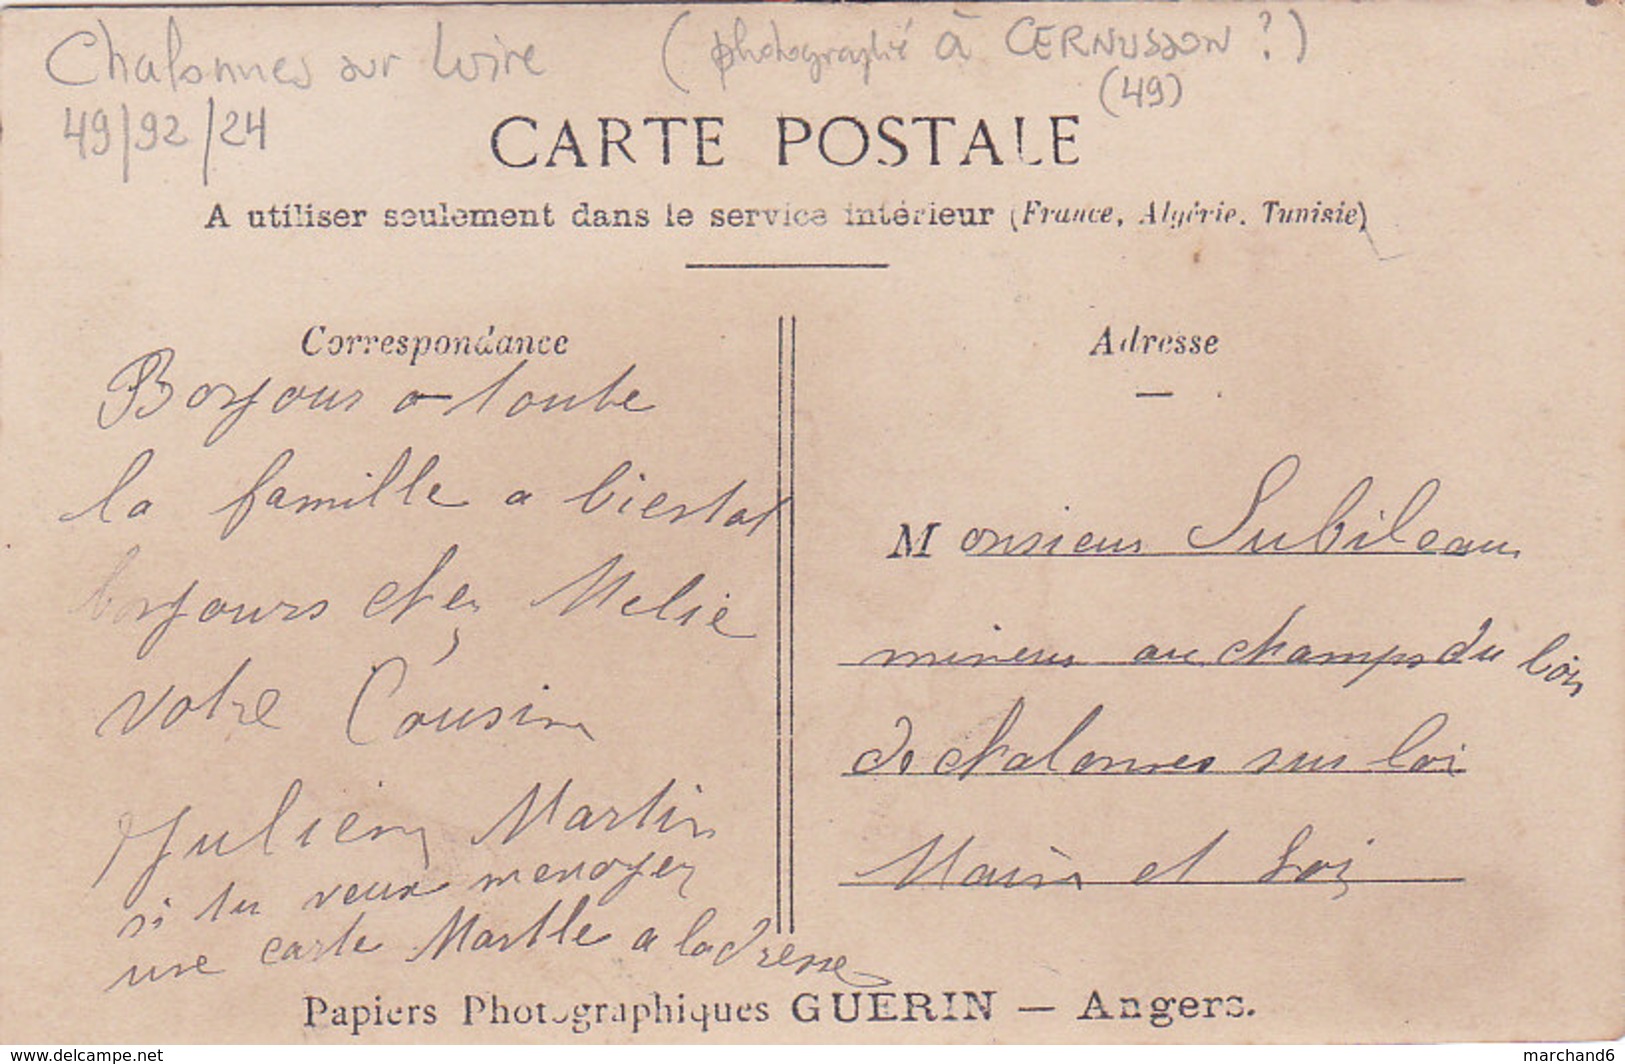 Chalonnes sur Loire (photographié à CERNUSSON ?)
49/92/24 (49)
CARTE POSTALE
A utiliser seulement dans le service intérieur (France, Algérie, Tunisie)
Correspondance
Borjour a toute
la famille a bientat
borjours chez Melie
votre Cousin
Julien Martin
si tu veux menvoyez
une carte Marthe a ladresse
Adresse
Monsieur Subileau
mineur au champs du bois
de chalonnes sur loi
Maine et Loi
Papiers Photographiques GUERIN — Angers.
delcampe.net
marchand6